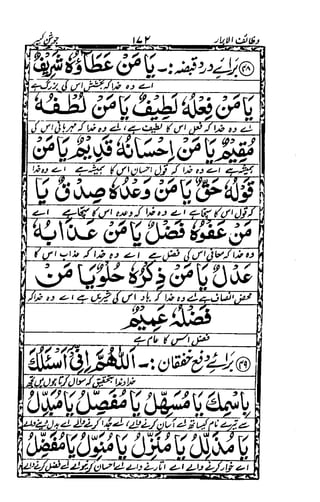 وظائف الابرار ۱۷۲ جوشن کبیر
(۲۸) برائے درد قبضہ :- يَا مَنْ عَطَاؤُهُ شَرِيْفٌ
اے وہ خدا کہ بخشش اس کی بزرگ ہے
يَا مَنْ فِعْلُهُ لَطِيْفٌ يَا مَنْ لُطْفُهُ
اے وہ خدا کہ فعل اس کا لطیف ہے اے وہ خدا کہ مہربانی اس کی
مُقِيْمٌ يَا مَنْ اِحْسَانُهُ قَدِيْمٌ يَا مَنْ
ہمیشہ ہے اے وہ خدا کہ احسان اس کا ہمیشہ ہے اے وہ خدا
قَوْلُهُ حَقٌّ يَا مَنْ وَعْدُهُ صِدْقٌ يَا
کہ قول اس کا سچا ہے اے وہ خدا کہ وعدہ اس کا سچا ہے اے
مَنْ عَفْوُهُ فَضْلٌ يَا مَنْ عَذَابُهُ
وہ خدا کہ معافی اس کی فضل ہے اے وہ خدا کہ عذاب اس کا
عَدْلٌ يَا مَنْ ذِكْرُهُ حُلْوٌ يَا مَنْ
محض انصاف ہے اے وہ خدا کہ یاد اس کی شیریں ہے اے وہ خدا کہ
فَضْلُهُ عَمِيْمٌ
فضل اس کا عام ہے
(۲۹) برائے دفع خفقان :- اَللّٰهُمَّ اِنِّیْ اَسْئَلُكَ
خداوندا بتحقیق کہ سوال کرتا ہوں میں تجھ
بِاسْمِكَ يَا مُسَهِّلُ يَا مُفَصِّلُ يَا مُبَدِّلُ
سے تیرے نام کیساتھ اے آسان کرنے والے اے جدا کرنے والے اے بدل دینے والے
يَا مُذَلِّلُ يَا مُنَزِّلُ يَا مُنَوِّلُ يَا مُفْضِلُ
اے خوار کرنے والے اے اتارنے والے اے احسان کرنے والے اے فضل کرنے والے